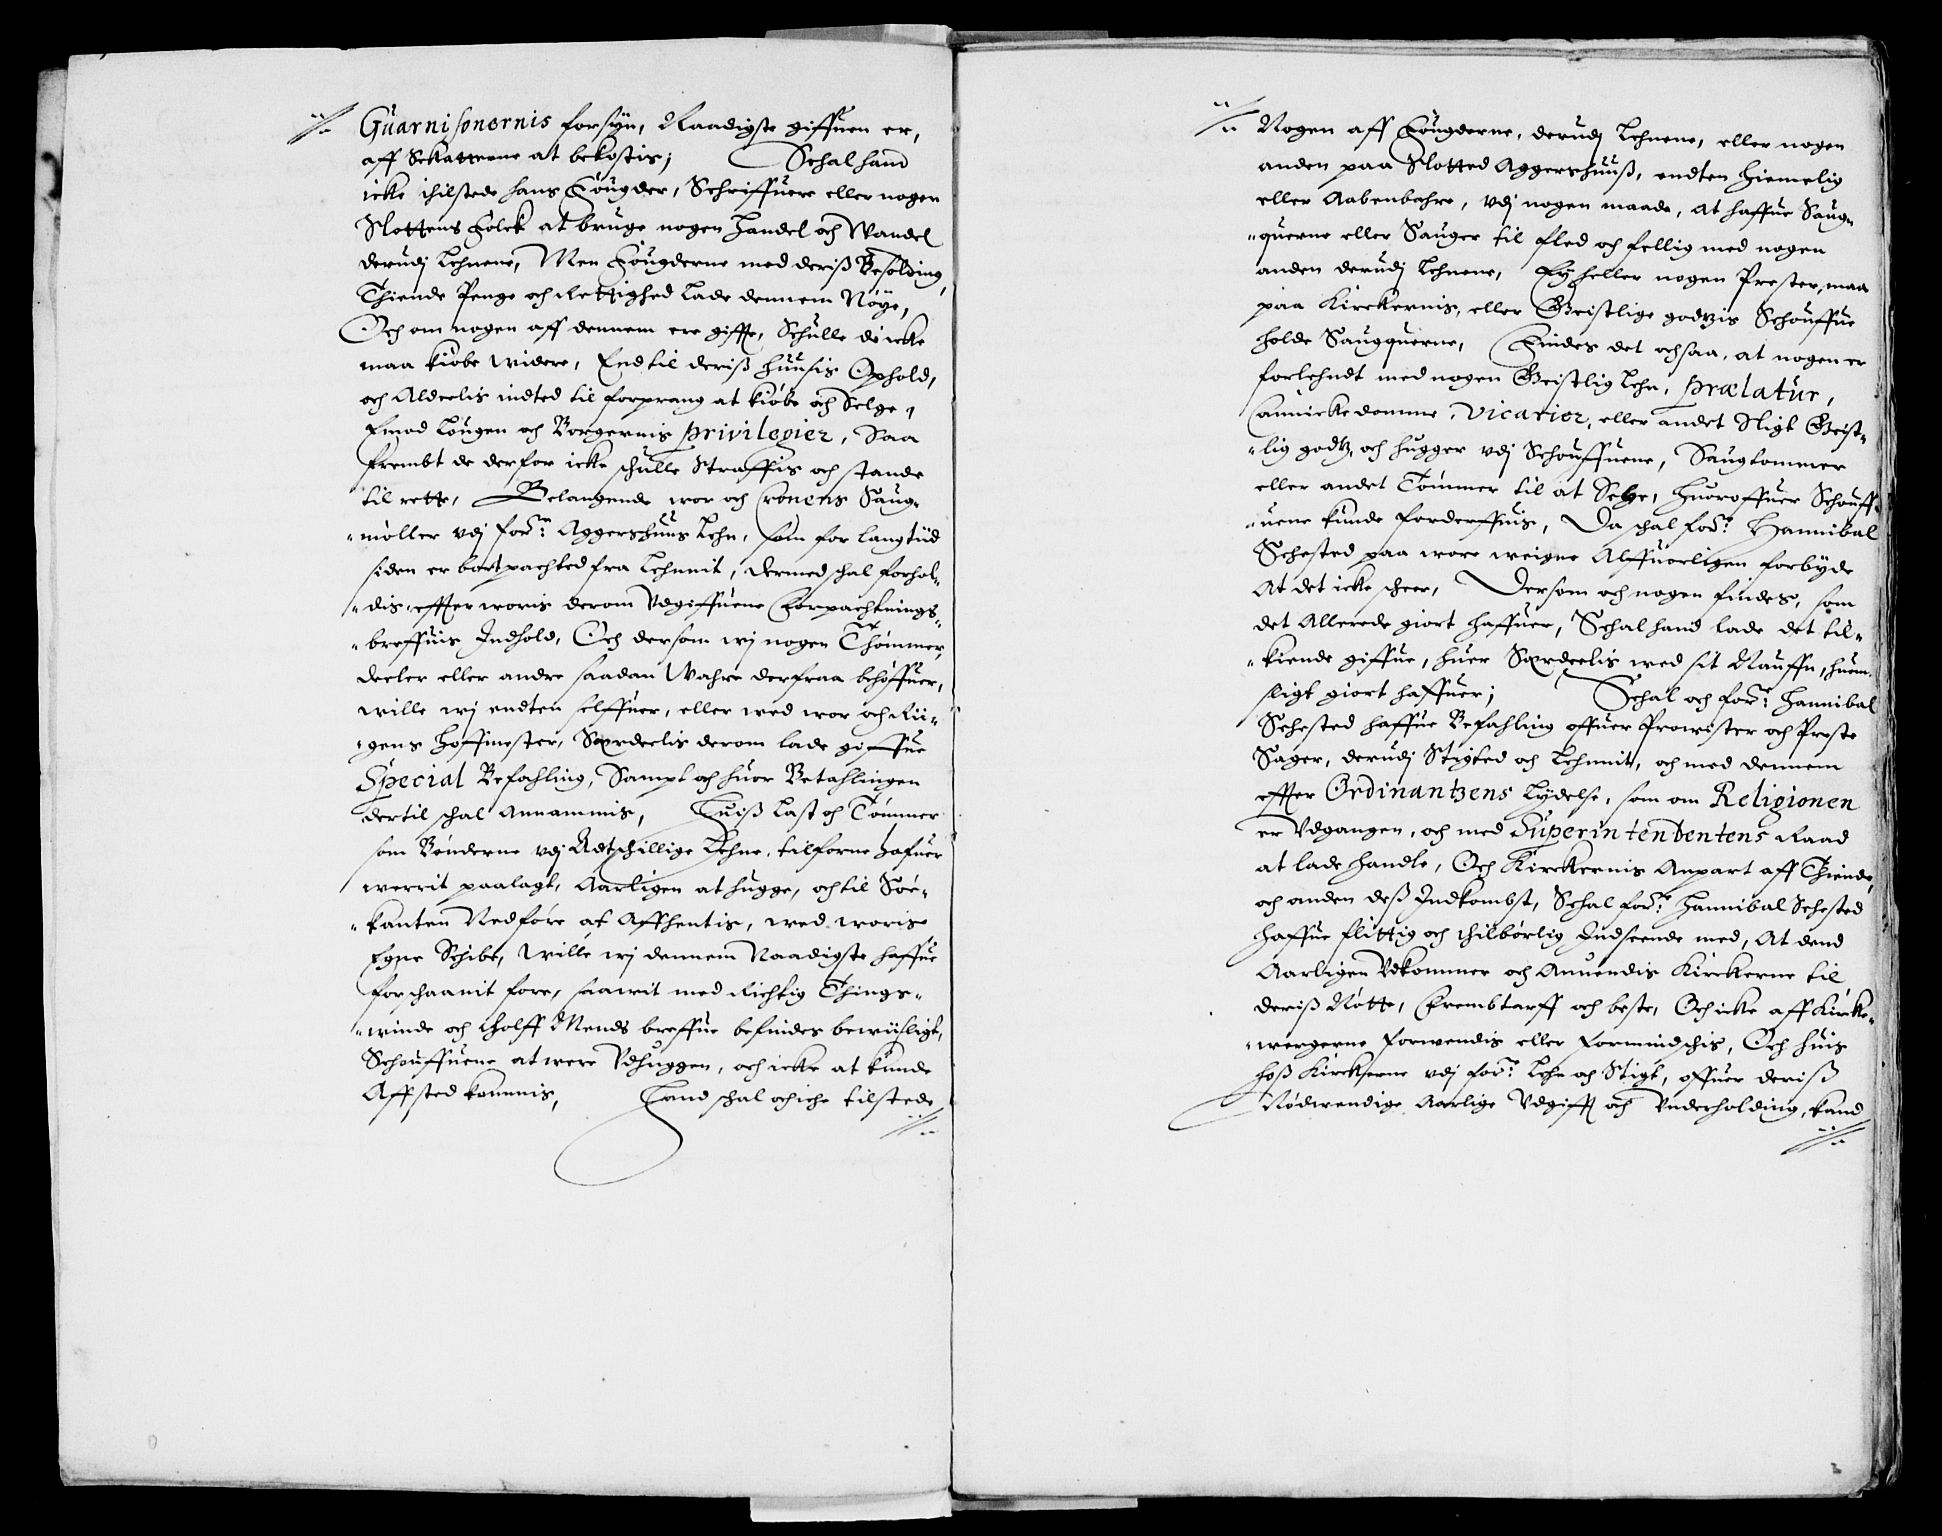 Guarnisonernis forsyn, Naadigste giffuen er,
aff Schatterne at bekostis; Schal hand
icke tilstede hans Fougder, Schriffuere eller nogen
Slottens Folck at bruge nogen Handel och Wandel
derudj Lehnene, Men Fougderne med deriß Besolding,
Thiende Penge och Rettighed lade dennem Nöye,
Och om nogen aff dennem ere giffte, Schulle de icke
maa kiöbe widere, End til deriß huusis Ophold,
och Aldeelis indted til forprang at kiöbe och Selge,
Emod Lougen och Borgernis privilegier, Saa
frembt de derfor icke schulle Straffis och stande
til rette, Belangende wor och Cronens Saug-
-möller vdj for:ne Aggershuus Lehn, som for langtiid
siden er bortpachted fra Lehnnit, dermed schal forhol-
-dis, effter woris derom Vdgiffuene Forpachtnings-
-breffuis Indhold, Och dersom wj nogen Thömmer,
deeler eller andre saadan Wahre derfraa behöffuer,
wille wj endten selffuer, eller wed wor och Rii-
-gens Hoffmester, Serdeelis derom lade giffue
Special Befahling, Sampt och huor Betahlingen
dertil schal Annammis, Huiß Last och Tömmer
som Bönderne vdj Adtschillige Lehne, tilforne hafuer
werrit paalagt, Aarligen at hugge, och til Söe-
-kanten Nedföre at Affhentis, wed woris
Egne Schibe, Wille wj dennem Naadigste haffue
forschaanit fore, saawit med Richtig Things-
-winde och Tholff Mends breffue befindes bewiisligt,
Schouffuene at were Vdhuggen, och icke at kunde
Affsted kommis, Hand schal och iche tilstede
Nogen aff Fougderne, derudj Lehnene, eller nogen
anden paa Slotted Aggershuuß, endten Hiemelig
eller Aabenbahre, vdj nogen maade, at haffue Saug-
-querne eller Sauger til fled och fellig med nogen
anden derudj Lehnene, Ey heller nogen Prester, maa
paa Kirckernis, eller Geistlige godtzis Schouffue
holde Saugquerne, Findes det ochsaa, at nogen er
forlehndt med nogen Geistlig Lehn, prælatur,
Cannickedomme, Vicarier, eller andet Sligt Geist-
-lig godtz, och hugger vdj Schouffuene, Saugtommer
eller andet Tömmer til at Selge, Huoroffuer Schouff-
-uene kunde forderffuis, Da schal for:ne Hannibal
Sehested paa wore weigne Alffuorligen forbyde
At det icke scheer, Dersom och nogen findes, som
det Allerede giort haffuer, Schal hand lade det til-
-kiende giffue, huer Serdeelis wed sit Nauffn, huem
sligt giort haffuer; Schal och for:ne Hannibal
Sehested haffue Befahling offuer Prowister och Preste
Sager, derudj Stigted och Lehnnit, och med dennem
effter Ordinantzens Lydelse, som om Religionen
er Vdgangen, och med Superintendentens Raad
at lade handle, Och Kirckernis Anpart aff Thiende,
och anden deß Indkombst, Schal for:ne Hannibal Sehested
haffue flittig och tilbörlig Indseende med, At dend
Aarligen Vdkommer och Anuendis Kirckerne til
deriß Nötte, Frembtarff och beste, Och icke aff Kircke-
-wergerne forwendis eller formindschis, Och huis
hoß Kirckerne vdj for:ne Lehn och Stigt, offuer deriß
Nödwendige Aarlige Vdgifft och Vnderholding, kand